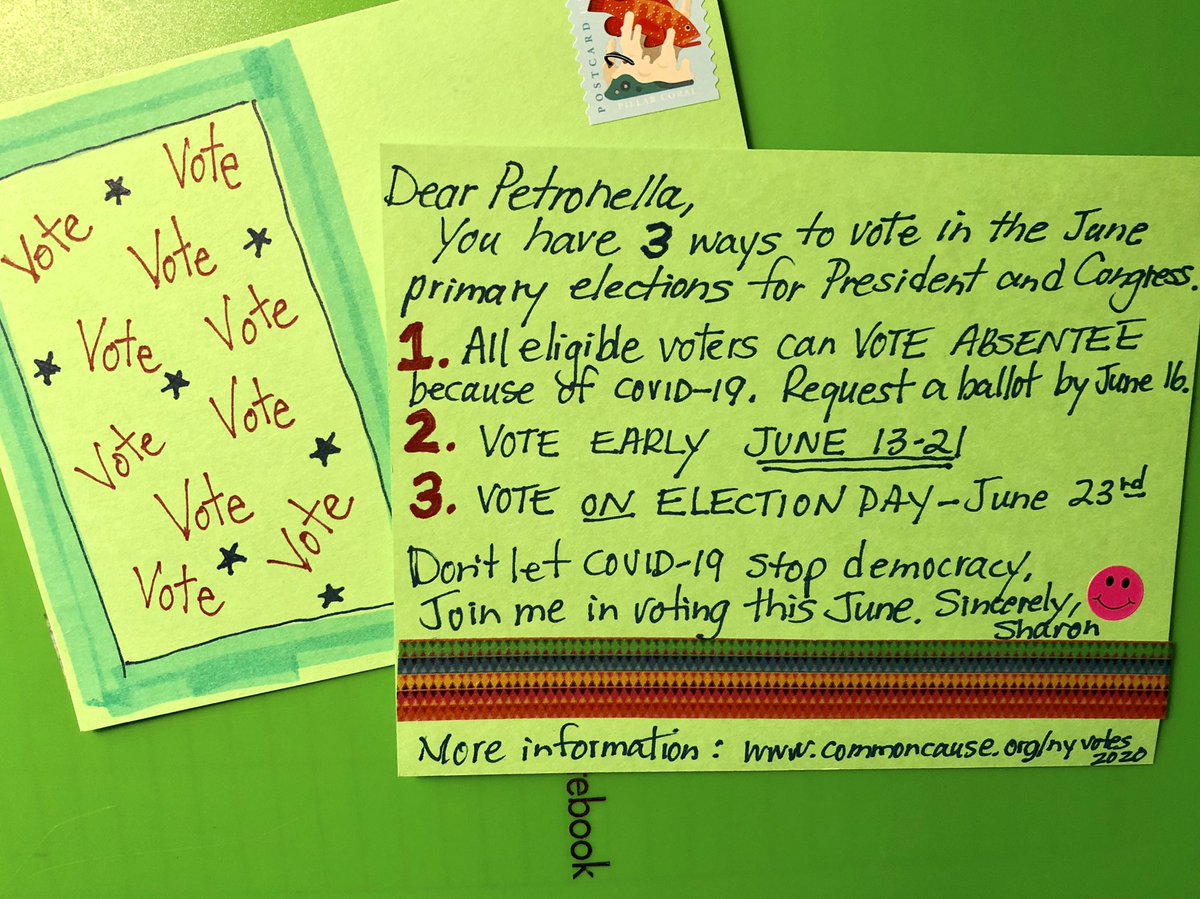 Vote
Vote
Vote
Vote
Vote
Vote
Vote
Vote
Vote
Vote
POSTCARD
PILLAR CORAL
Dear Petronella,
You have 3 ways to vote in the June
primary elections for President and Congress.
1. All eligible voters can VOTE ABSENTEE
because of COVID-19. Request a ballot by June 16.
2. VOTE EARLY JUNE 13-21
3. VOTE ON ELECTION DAY - June 23rd
Don't let COVID-19 stop democracy.
Join me in voting this June. Sincerely,
Sharon
More information: www.commoncause.org/nyvotes
2020
ebook